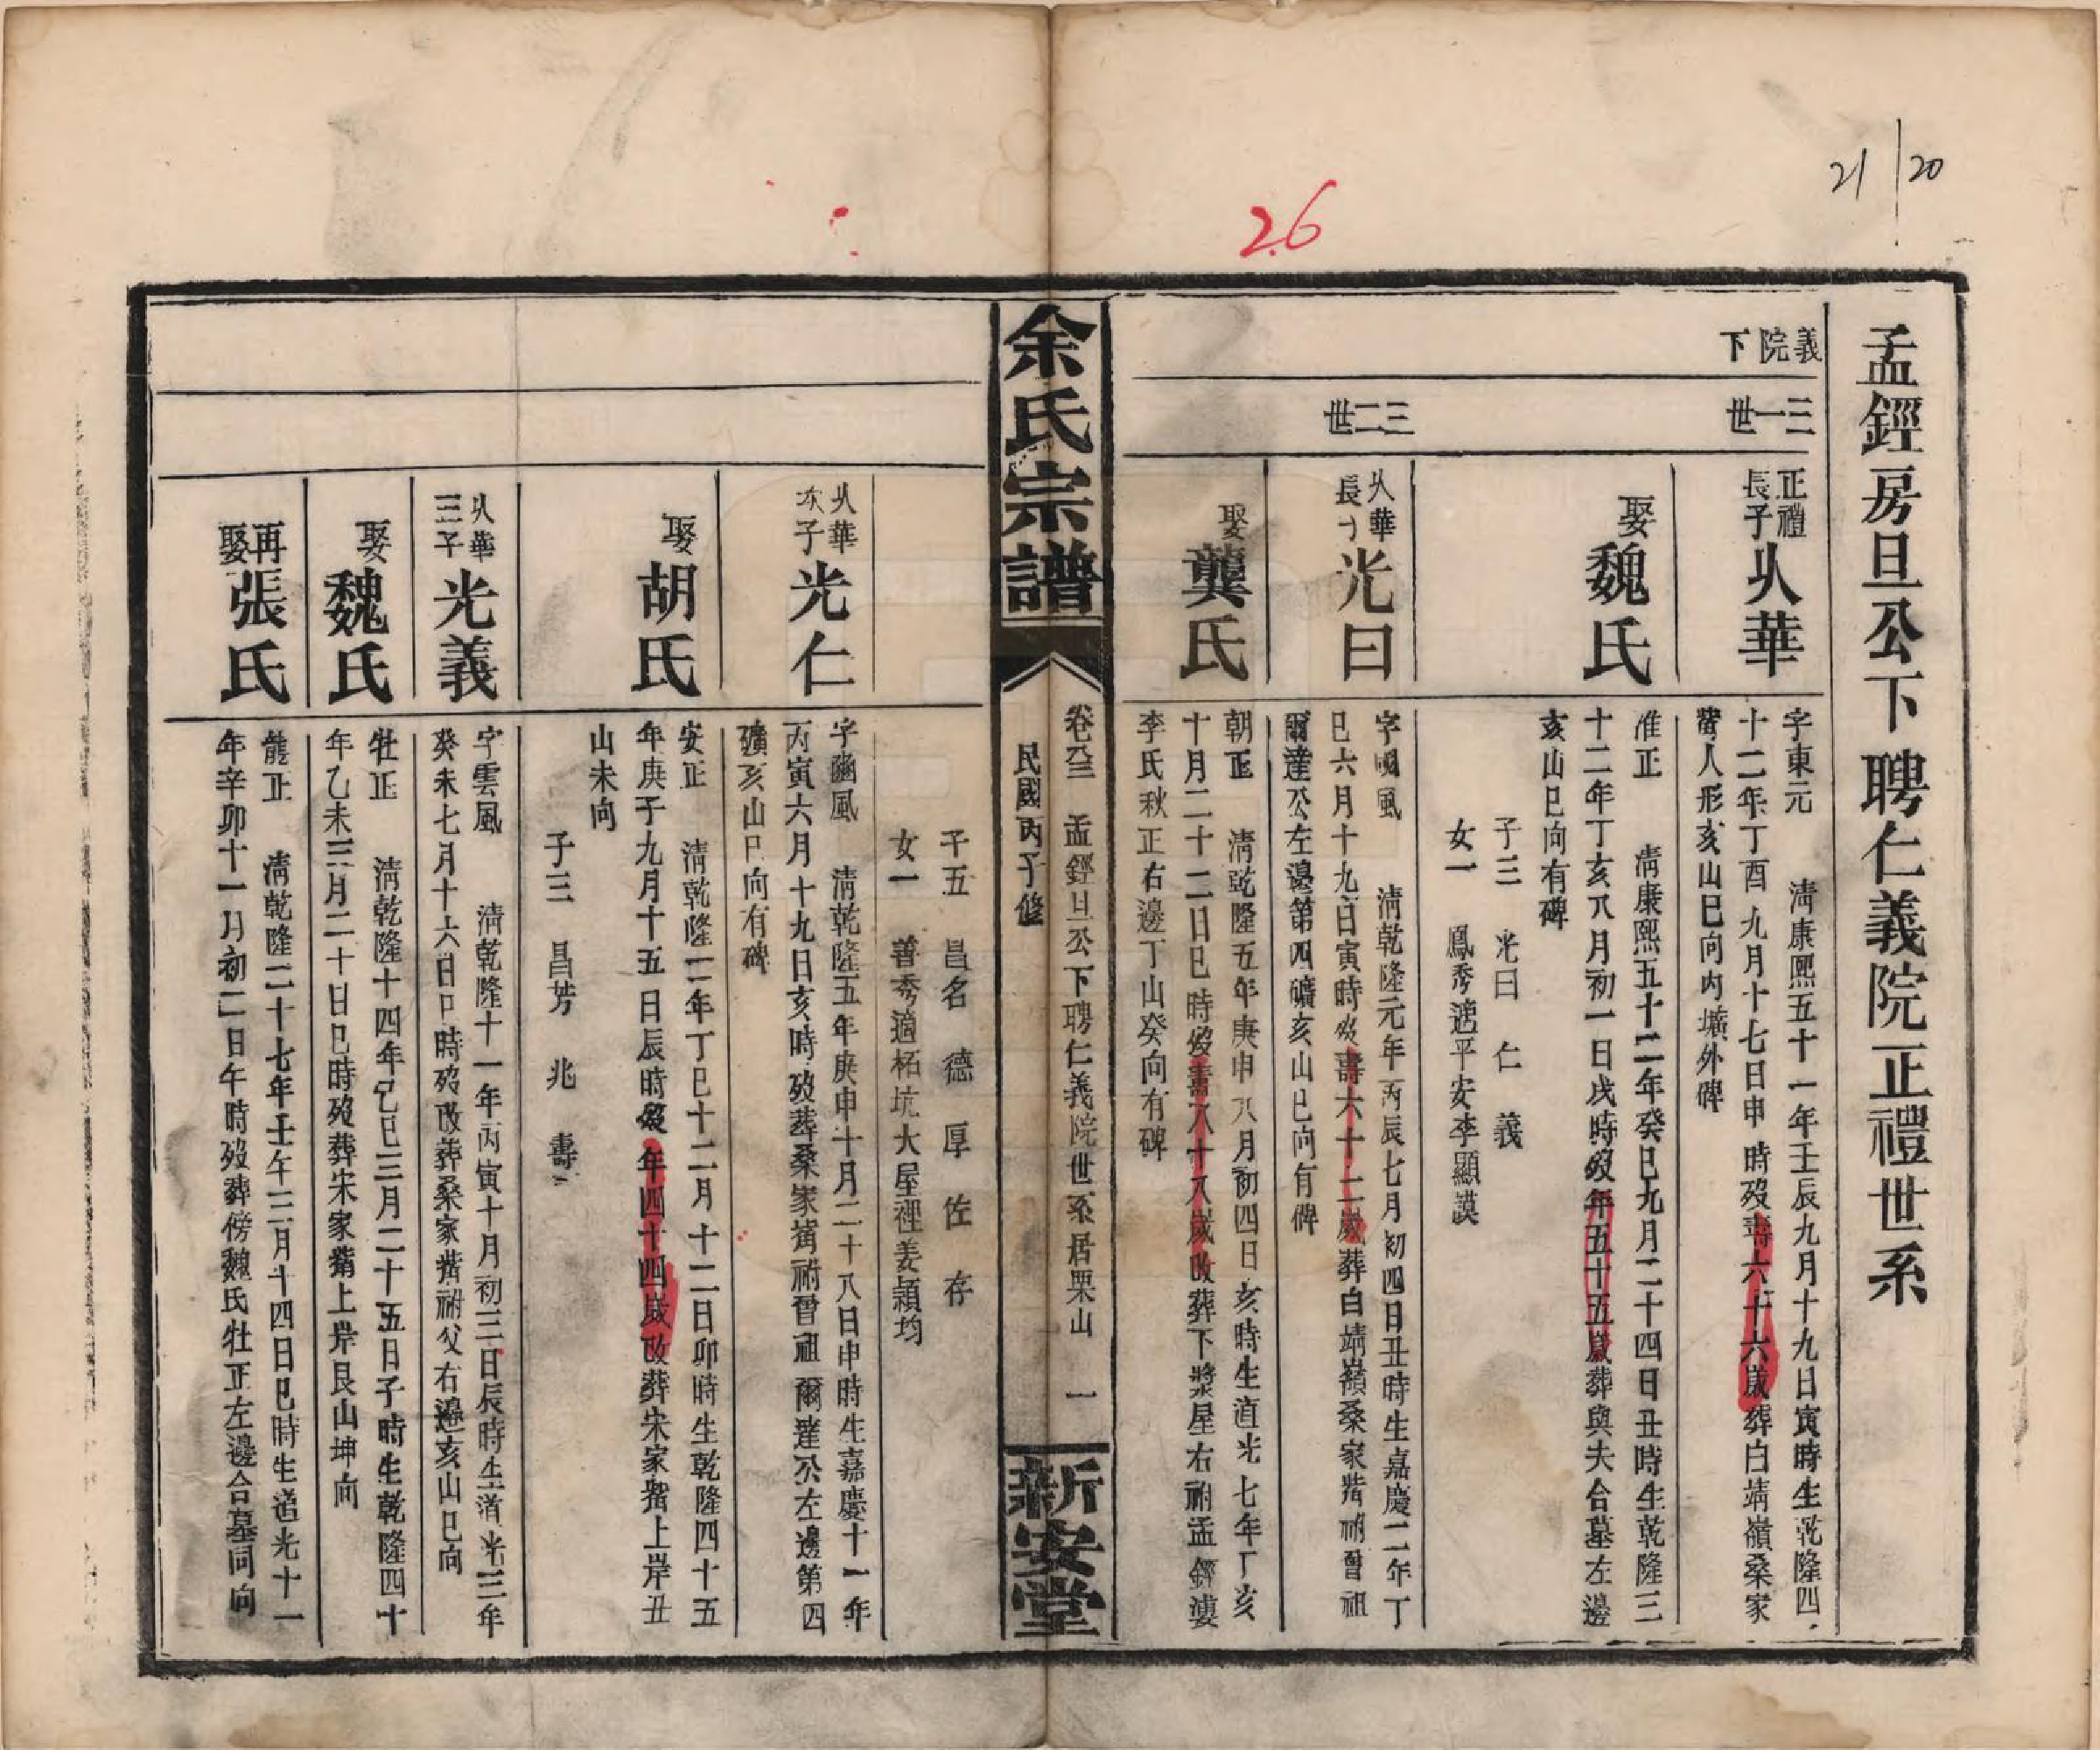 21/20
26
孟鏗房旦公下聘仁義院正禮世系
義院下
三一世
正禮長子
从華
字東元　清康熙五十一年壬辰九月十九日寅時生乾隆四
十二年丁酉九月十七日申時歿壽六十六歲葬白靖嶺桑家
嘴人形亥山巳向内壙外碑
娶
魏氏
淮正　清康熙五十二年癸巳九月二十四日丑時生乾隆三
十二年丁亥八月初一日戌時歿年五十五歲葬與夫合墓左邊
亥山巳向有碑
子三　光曰　仁　義
女一　鳳秀適平安李顯謨
三二世
从華長子
光曰
字國風　清乾隆元年丙辰七月初四日丑時生嘉慶二年丁
巳六月十九日寅時歿壽六十二歲葬白靖嶺桑家嘴祔曾祖
爾達公左邊第四壙亥山巳向有碑
娶
龔氏
朝正　清乾隆五年庚申八月初四日亥時生道光七年丁亥
十月二十二日巳時歿壽八十八歲改葬下漿屋右祔孟鏗
李氏秋正右邊丁山癸向有碑
余氏宗譜
卷叁　孟鏗旦公下聘仁義院世系居栗山　一
民國丙子修
新安堂
子五　昌名　德　厚　佐　存
女一　善秀適柘坑大屋裡姜穎均
从華次子
光仁
字豳風　清乾隆五年庚申十月二十八日申時生嘉慶十一年
丙寅六月十九日亥時歿葬桑家嘴祔曾祖爾達公左邊第四
壙亥山巳向有碑
娶
胡氏
安正　清乾隆二年丁巳十二月十二日卯時生乾隆四十五
年庚子九月十五日辰時歿年四十四歲改葬宋家嘴上岸丑
山未向
子三　昌芳　兆　壽
从華三子
光義
字雲風　清乾隆十一年丙寅十月初三日辰時生道光三年
癸未七月十六日巳時歿改葬桑家嘴祔父右邊亥山巳向
娶
魏氏
牡正　清乾隆十四年己巳三月二十五日子時生乾隆四十
年乙未三月二十日巳時歿葬宋家嘴上岸艮山坤向
再娶
張氏
龍正　清乾隆二十七年壬午三月十四日巳時生道光十一
年辛卯十一月初二日午時歿葬傍魏氏牡正左邊合墓同向